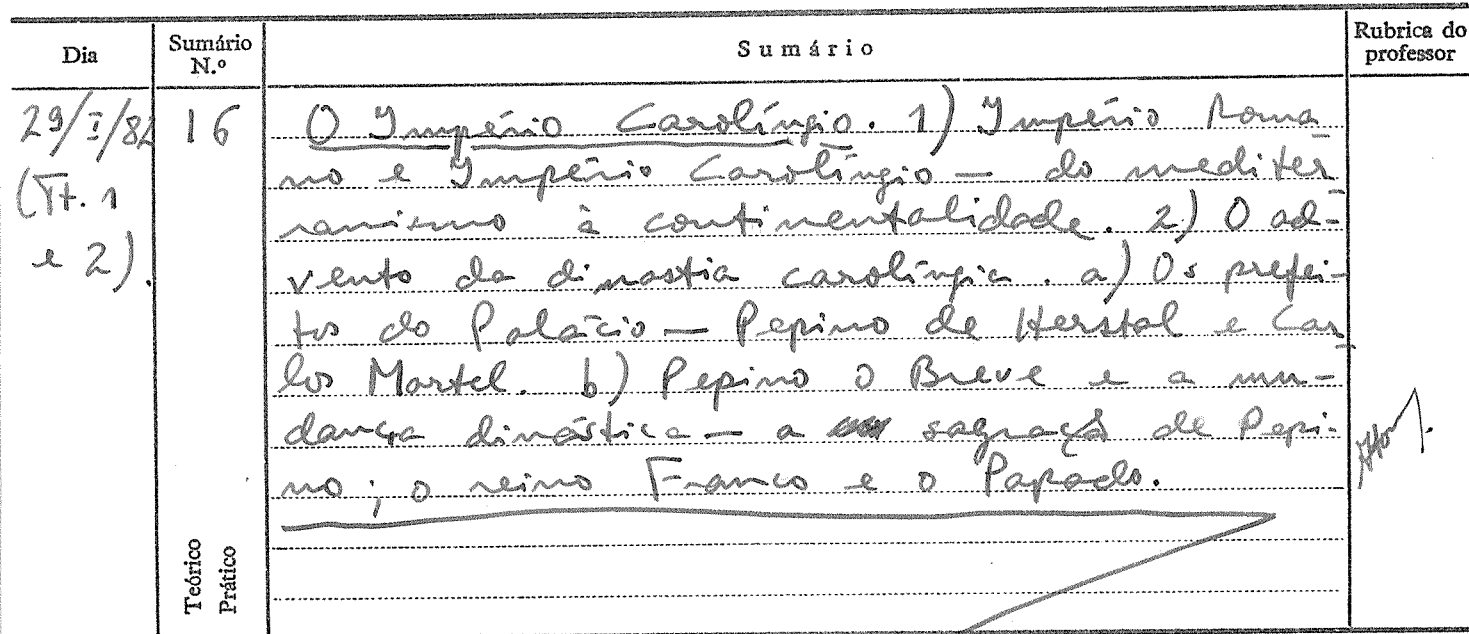 Dia
Sumário N.º
Sumário
Rubrica do professor
29/I/82
(Tt. 1
e 2).
16
O Império Carolíngio. 1) Império Roma
no e Império Carolíngio — do mediter
ranismo à continentalidade. 2) O ad-
vento da dinastia carolíngia. a) Os prefei-
tos do Palácio — Pepino de Herstal e Car
los Martel. b) Pepino o Breve e a mu-
dança dinástica — a sagração de Pepi-
no; o reino Franco e o Papado.
Teórico
Prático